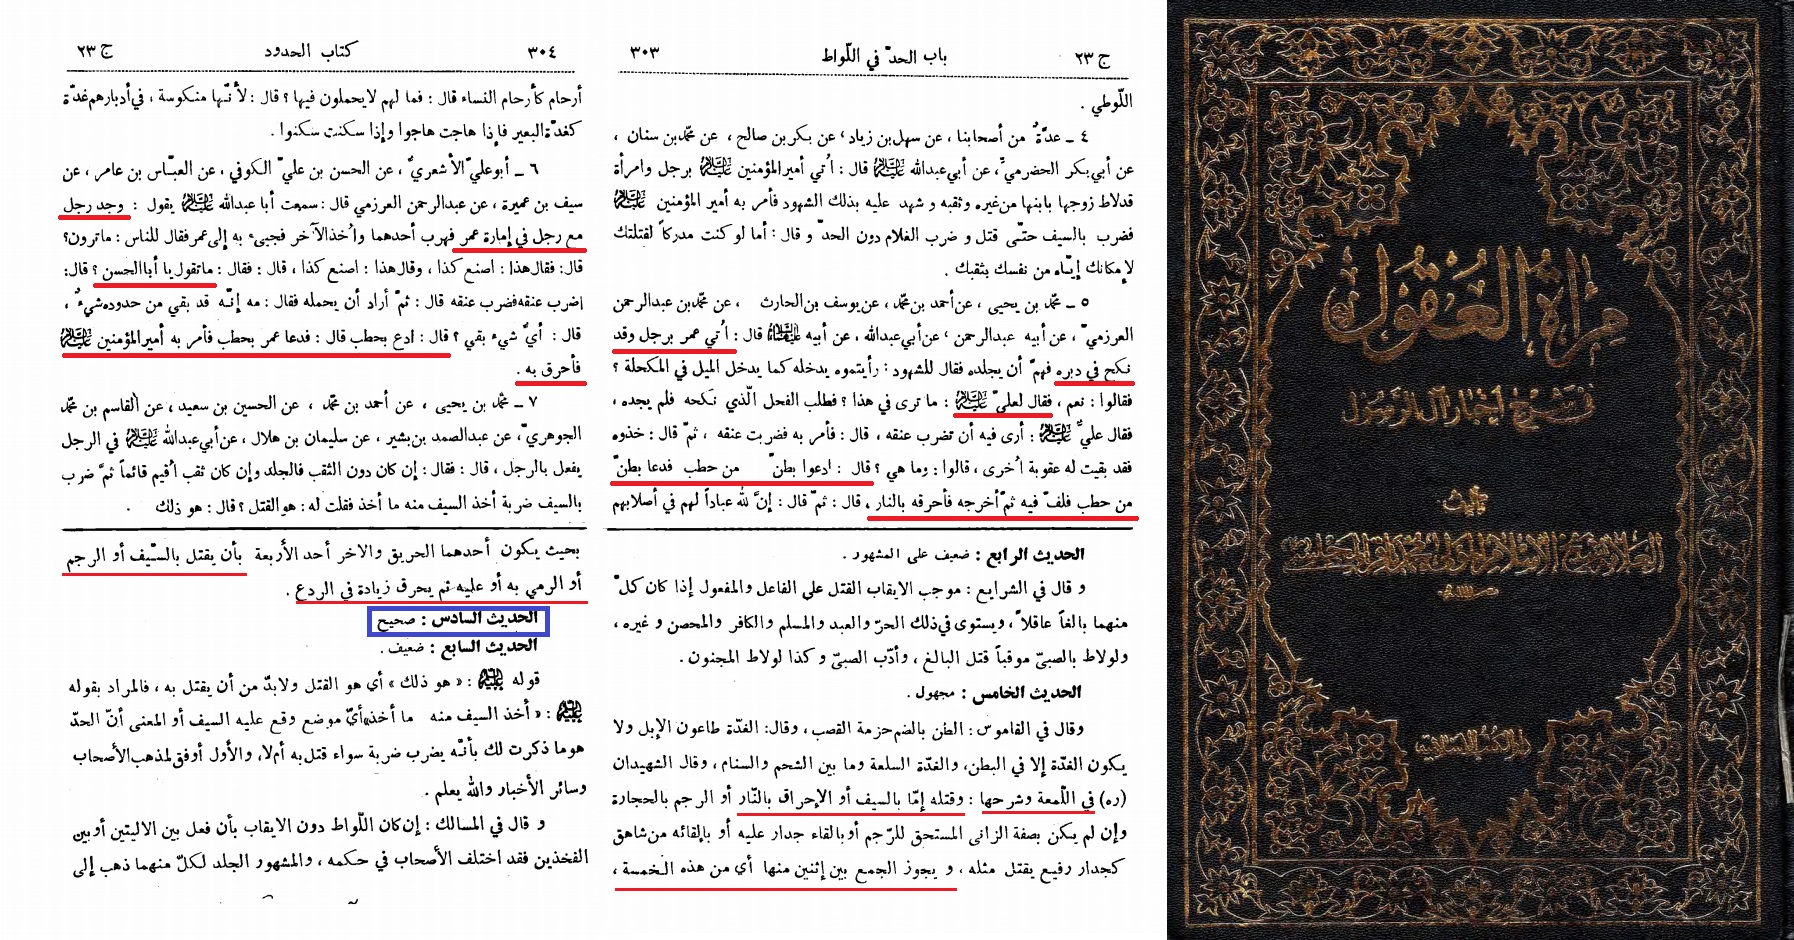 ج ٢٣
باب الحدّ في اللّواط
٣٠٣
اللّوطي .
٤ ـ عدَّةٌ من أصحابنا ، عن سهل بن زياد ، عن بكر بن صالح ، عن محمّد بن سنان ،
عن أبي بكر الحضرميّ ، عن أبي عبدالله عليه السلام قال : اُتي أمير المؤمنين عليه السلام برجل وامرأة
قد لاط زوجها بابنها من غيره وثقبه و شهد عليه بذلك الشهود فأمر به أمير المؤمنين عليه السلام
فضرب بالسيف حتّى قتل و ضرب الغلام دون الحدّ و قال : أما لو كنت مدركاً لقتلتك
لإمكانك إيّاه من نفسك بثقبك .
٥ ـ محمّد بن يحيى ، عن أحمد بن محمّد ، عن يوسف بن الحارث ، عن محمّد بن عبدالرحمن
العرزميّ ، عن أبيه عبدالرحمن ، عن أبي عبدالله ، عن أبيه عليهما السلام قال : اُتي عمر برجل وقد
نكح في دبره فهمّ أن يجلده فقال للشهود : رأيتموه يدخله كما يدخل الميل في المكحلة ؟
فقالوا : نعم ، فقال لعليّ عليه السلام : ما ترى في هذا ؟ فطلب الفحل الّذي نكحه فلم يجده ،
فقال عليٌّ عليه السلام : أرى فيه أن تضرب عنقه ، قال : فأمر به فضربت عنقه ، ثمّ قال : خذوه
فقد بقيت له عقوبة اُخرى ، قالوا : وما هي ؟ قال : ادعوا بطنّ من حطب فدعا بطنّ
من حطب فلفّ فيه ثمّ أخرجه فأحرقه بالنار ، قال : ثمّ قال : إنَّ لله عباداً لهم في أصلابهم
الحديث الرابع : ضعيف على المشهور .
و قال في الشرايع : موجب الايقاب القتل على الفاعل والمفعول إذا كان كلّ
منهما بالغاً عاقلاً ، ويستوى في ذلك الحرّ والعبد والمسلم والكافر والمحصن و غيره ،
ولو لاط بالصبيّ موقباً قتل البالغ ، وأدّب الصبيّ و كذا لو لاط المجنون .
الحديث الخامس : مجهول .
وقال في القاموس : الطن بالضم حزمة القصب ، وقال : الغدّة طاعون الإبل ولا
يكون الغدّة إلا في البطن ، والغدّة السلعة وما بين الشحم والسنام ، وقال الشهيدان
(ره) في اللّمعة وشرحها : وقتله إمّا بالسيف أو الإحراق بالنّار أو الرجم بالحجارة
وإن لم يكن بصفة الزانى المستحق للرّجم أو بالقاء جدار عليه أو بإلقائه من شاهق
كجدار رفيع يقتل مثله ، و يجوز الجمع بين إثنين منها أي من هذه الخمسة ،
٣٠٤
كتاب الحدود
ج ٢٣
أرحام كأرحام النساء قال : فما لهم لا يحملون فيها ؟ قال : لأنّها منكوسة ، في أدبارهم غدّة
كغدّة البعير فإذا هاجت هاجوا وإذا سكنت سكنوا .
٦ ـ أبوعليّ الأشعريُّ ، عن الحسن بن عليّ الكوفي ، عن العبّاس بن عامر ، عن
سيف بن عميرة ، عن عبدالرحمن العرزمي قال : سمعت أبا عبدالله عليه السلام يقول : وجد رجل
مع رجل في إمارة عمر فهرب أحدهما واُخذ الآخر فجيىء به إلى عمر فقال للناس : ماترون؟
قال : فقال هذا : اصنع كذا ، وقال هذا : اصنع كذا ، قال : فقال : ما تقول يا أبا الحسن ؟ قال :
اضرب عنقه فضرب عنقه قال : ثمّ أراد أن يحمله فقال : مه إنّه قد بقي من حدوده شيءٌ ،
قال : أيُّ شيء بقي ؟ قال : ادع بحطب قال : فدعا عمر بحطب فأمر به أمير المؤمنين عليه السلام
فأحرق به .
٧ ـ محمّد بن يحيى ، عن أحمد بن محمّد ، عن الحسين بن سعيد ، عن القاسم بن محمّد
الجوهريّ ، عن عبدالصمد بن بشير ، عن سليمان بن هلال ، عن أبي عبدالله عليه السلام في الرجل
يفعل بالرجل ، قال : فقال : إن كان دون الثقب فالجلد وإن كان ثقب اُقيم قائماً ثمَّ ضرب
بالسيف ضربة أخذ السيف منه ما أخذ فقلت له : هو القتل ؟ قال : هو ذلك .
بحيث يكون أحدهما الحريق والاخر أحد الأربعة بأن يقتل بالسّيف أو الرجم
أو الرمي به أو عليه ثم يحرق زيادة في الردع .
الحديث السادس : صحيح
الحديث السابع : ضعيف .
قوله عليه السلام : « هو ذلك » أي هو القتل ولابدّ من أن يقتل به ، فالمراد بقوله
عليه السلام : « أخذ السيف منه ما أخذ» أيّ موضع وقع عليه السيف أو المعنى أنّ الحدّ
هو ما ذكرت لك بأنّه يضرب ضربة سواء قتل به أم لا، والأول أوفق لمذهب الأصحاب
وسائر الأخبار والله يعلم .
و قال في المسالك : إن كان اللّواط دون الايقاب بأن فعل بين الاليتين أو بين
الفخذين فقد اختلف الأصحاب في حكمه ، والمشهور الجلد لكلّ منهما ذهب إلى
مرآة العقول
في شرح أخبار آل الرسول
تأليف
العلامة شيخ الإسلام المولى محمد باقر المجلسي
دار الكتب الإسلامية